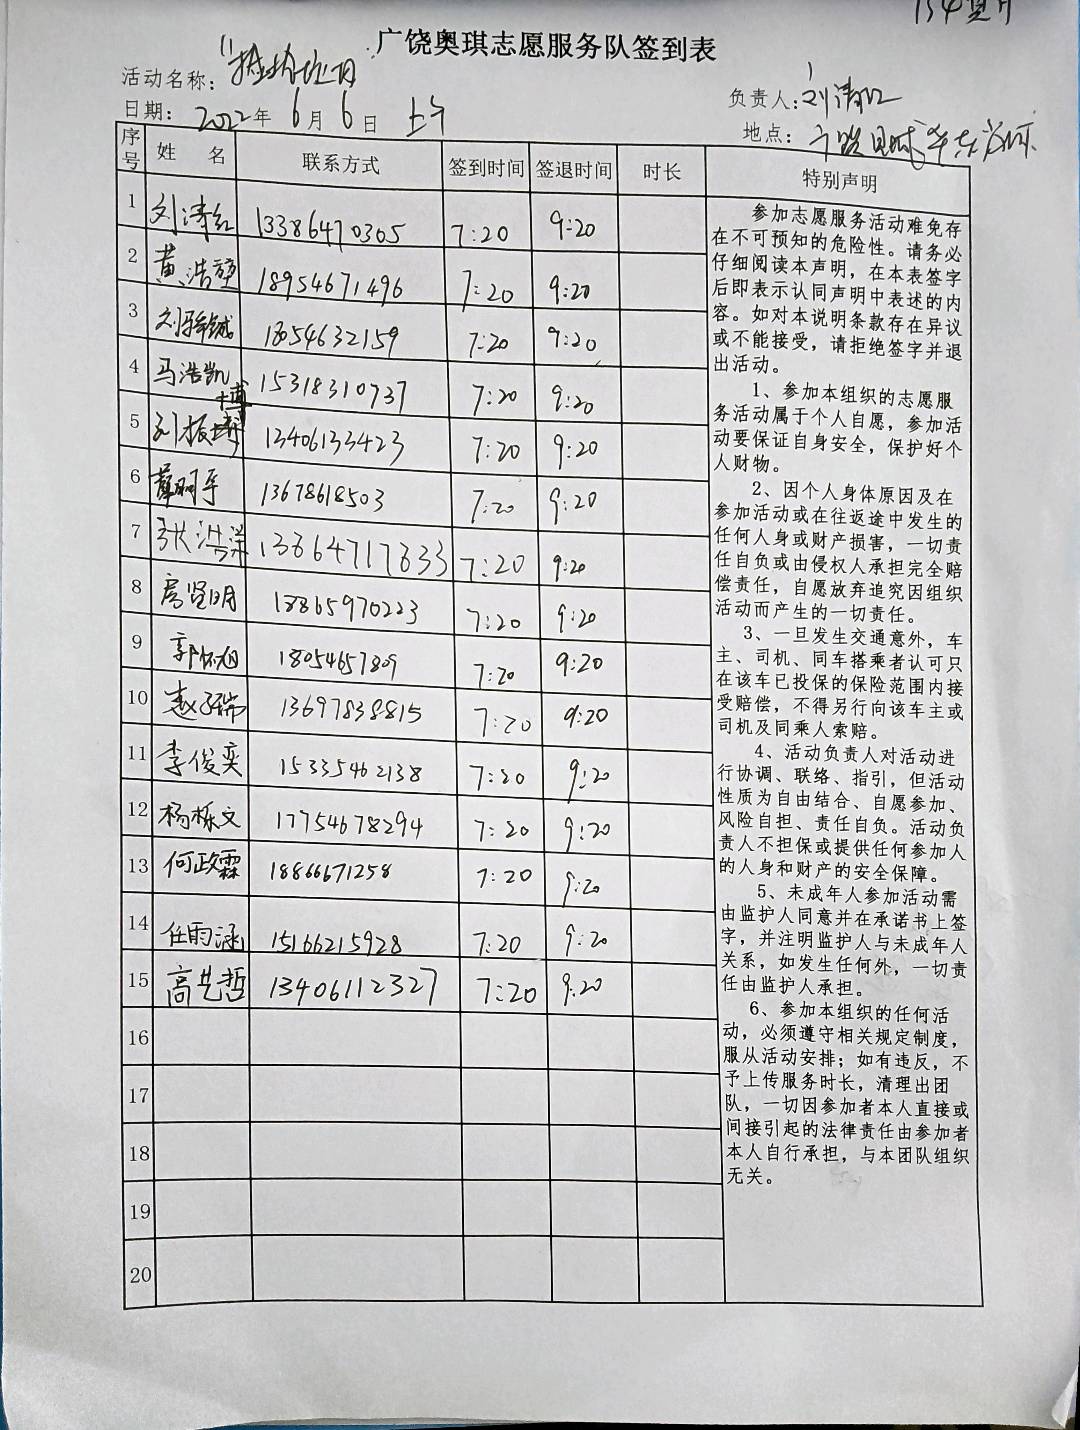 广饶奥琪志愿服务队签到表
活动名称：
负责人：刘清红
日期：2022年6月6日 上午
地点：广饶
序号 姓名 联系方式 签到时间 签退时间 时长 特别声明
1 刘清红 13386470305 7:20 9:20
2 黄浩 18954671496 7:20 9:20
3 刘 18054632159 7:20 9:20
4 马浩凯 15318310737 7:20 9:20
5 刘振博 13406133423 7:20 9:20
6 薛明宇 13678618503 7:20 9:20
7 张浩洋 13864717833 7:20 9:20
8 房贤明 18865970223 7:20 9:20
9 郭怀旭 18054657809 7:20 9:20
10 赵子瑞 13697838815 7:20 9:20
11 李俊奕 15335462138 7:20 9:20
12 杨栎文 17754678294 7:20 9:20
13 何政霖 18866671258 7:20 9:20
14 任雨涵 15166215928 7:20 9:20
15 高先哲 13406112327 7:20 9:20
16
17
18
19
20
参加志愿服务活动难免存
在不可预知的危险性。请务必
仔细阅读本声明，在本表签字
后即表示认同声明中表述的内
容。如对本说明条款存在异议
或不能接受，请拒绝签字并退
出活动。
1、参加本组织的志愿服
务活动属于个人自愿，参加活
动要保证自身安全，保护好个
人财物。
2、因个人身体原因及在
参加活动或在往返途中发生的
任何人身或财产损害，一切责
任自负或由侵权人承担完全赔
偿责任，自愿放弃追究因组织
活动而产生的一切责任。
3、一旦发生交通意外，车
主、司机、同车搭乘者认可只
在该车已投保的保险范围内接
受赔偿，不得另行向该车主或
司机及同乘人索赔。
4、活动负责人对活动进
行协调、联络、指引，但活动
性质为自由结合、自愿参加、
风险自担、责任自负。活动负
责人不担保或提供任何参加人
的人身和财产的安全保障。
5、未成年人参加活动需
由监护人同意并在承诺书上签
字，并注明监护人与未成年人
关系，如发生任何外，一切责
任由监护人承担。
6、参加本组织的任何活
动，必须遵守相关规定制度，
服从活动安排；如有违反，不
予上传服务时长，清理出团
队，一切因参加者本人直接或
间接引起的法律责任由参加者
本人自行承担，与本团队组织
无关。